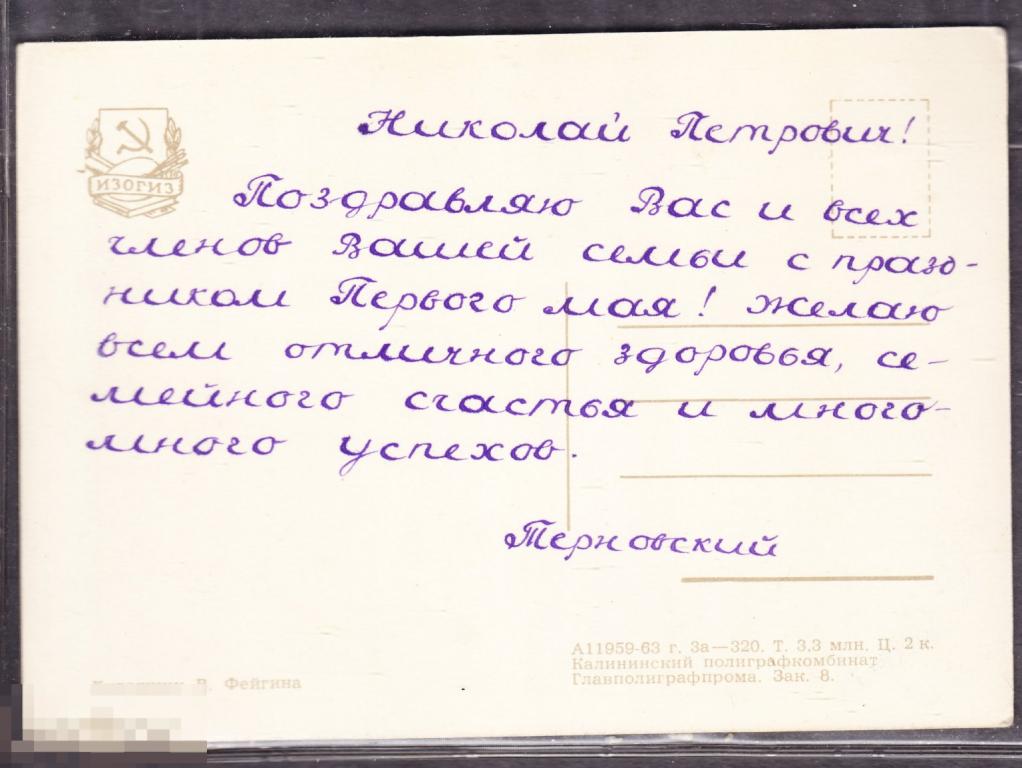 ИЗОГИЗ
Николай Петрович!
Поздравляю Вас и всех
членов Вашей семьи с празд-
ником Первого мая! Желаю
всем отличного здоровья, се-
мейного счастья и много-
много успехов.
Терновский
А11959-63 г. За—320. Т. 3,3 млн. Ц. 2 к.
Калининский полиграфкомбинат
Главполиграфпрома. Зак. 8.
В. Фейгина